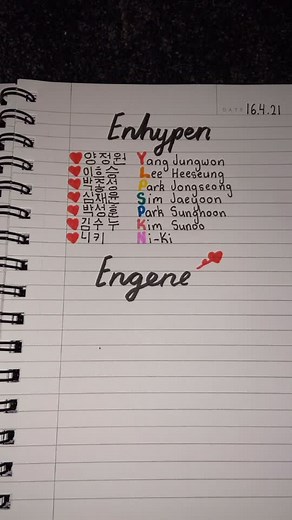 DATE 16.4.21
Enhypen
양정원 Yang Jungwon
이희승 Lee Heeseung
박종성 Park Jongseong
심재윤 Sim Jaeyoon
박성훈 Park Sunghoon
김수누 Kim Sunoo
니키 Ni-Ki
Engene